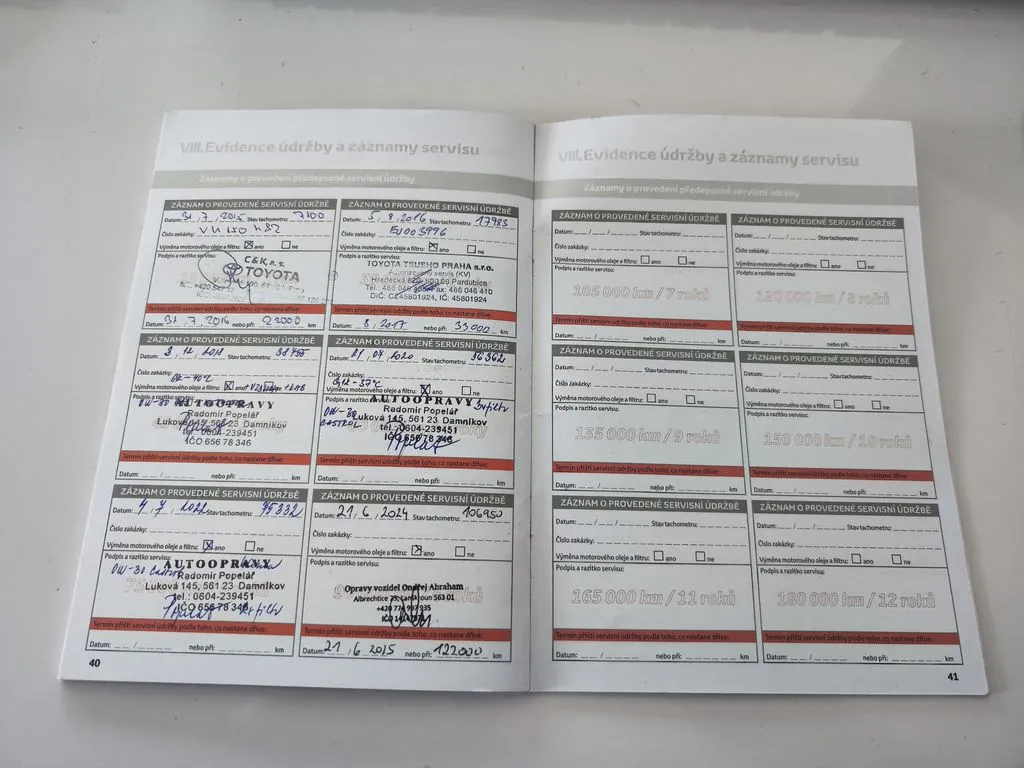 VIII.Evidence údržby a záznamy servisu
Záznamy o provedení předepsané servisní údržby
ZÁZNAM O PROVEDENÉ SERVISNÍ ÚDRŽBĚ
Datum: 31.7.2015 Stav tachometru: 7100
Číslo zakázky:
Výměna motorového oleje a filtru: ano ne
Podpis a razítko servisu:
C&K, a. s.
TOYOTA
Termín příští servisní údržby podle toho, co nastane dříve:
Datum: 31.7.2016 nebo při: 22000 km
ZÁZNAM O PROVEDENÉ SERVISNÍ ÚDRŽBĚ
Datum: 5.8.2016 Stav tachometru: 17983
Číslo zakázky: EV003996
Výměna motorového oleje a filtru: ano ne
Podpis a razítko servisu:
TOYOTA TSUSHO PRAHA s.r.o.
Autorizovaný servis (KV)
Hradecká 620, 620 09 Pardubice
DIČ: CZ45801924, IČ: 45801924
Termín příští servisní údržby podle toho, co nastane dříve:
Datum: 8.2017 nebo při: 33000 km
ZÁZNAM O PROVEDENÉ SERVISNÍ ÚDRŽBĚ
Datum: Stav tachometru:
Číslo zakázky:
Výměna motorového oleje a filtru: ano
Podpis a razítko servisu:
AUTOOPRAVY
Radomír Popelář
Luková 145, 561 23 Damníkov
tel.: 0604-239451
IČO 656 78 346
Termín příští servisní údržby podle toho, co nastane dříve:
Datum: nebo při: km
ZÁZNAM O PROVEDENÉ SERVISNÍ ÚDRŽBĚ
Datum: 01.07.2020 Stav tachometru: 56362
Číslo zakázky:
Výměna motorového oleje a filtru: ano ne
Podpis a razítko servisu:
OW-30
CASTROL
AUTOOPRAVY
Radomír Popelář
Luková 145, 561 23 Damníkov
tel.: 0604-239451
IČO 656 78 346
Termín příští servisní údržby podle toho, co nastane dříve:
Datum: nebo při: km
ZÁZNAM O PROVEDENÉ SERVISNÍ ÚDRŽBĚ
Datum: 4.7.2022 Stav tachometru: 75332
Číslo zakázky:
Výměna motorového oleje a filtru: ano ne
Podpis a razítko servisu:
OW-30
AUTOOPRAVY
Radomír Popelář
Luková 145, 561 23 Damníkov
tel.: 0604-239451
IČO 656 78 346
Termín příští servisní údržby podle toho, co nastane dříve:
Datum: nebo při: km
ZÁZNAM O PROVEDENÉ SERVISNÍ ÚDRŽBĚ
Datum: 21.6.2024 Stav tachometru: 106950
Číslo zakázky:
Výměna motorového oleje a filtru: ano ne
Podpis a razítko servisu:
Opravy vozidel Ondřej Abraham
Albrechtice 25, Lanškroun 563 01
Termín příští servisní údržby podle toho, co nastane dříve:
Datum: 21.6.2025 nebo při: 122000 km
40
VIII.Evidence údržby a záznamy servisu
Záznamy o provedení předepsané servisní údržby
ZÁZNAM O PROVEDENÉ SERVISNÍ ÚDRŽBĚ
Datum: Stav tachometru:
Číslo zakázky:
Výměna motorového oleje a filtru: ano ne
Podpis a razítko servisu:
105 000 km / 7 roků
Termín příští servisní údržby podle toho, co nastane dříve:
Datum: nebo při: km
ZÁZNAM O PROVEDENÉ SERVISNÍ ÚDRŽBĚ
Datum: Stav tachometru:
Číslo zakázky:
Výměna motorového oleje a filtru: ano ne
Podpis a razítko servisu:
120 000 km / 8 roků
Termín příští servisní údržby podle toho, co nastane dříve:
Datum: nebo při: km
ZÁZNAM O PROVEDENÉ SERVISNÍ ÚDRŽBĚ
Datum: Stav tachometru:
Číslo zakázky:
Výměna motorového oleje a filtru: ano ne
Podpis a razítko servisu:
135 000 km / 9 roků
Termín příští servisní údržby podle toho, co nastane dříve:
Datum: nebo při: km
ZÁZNAM O PROVEDENÉ SERVISNÍ ÚDRŽBĚ
Datum: Stav tachometru:
Číslo zakázky:
Výměna motorového oleje a filtru: ano ne
Podpis a razítko servisu:
150 000 km / 10 roků
Termín příští servisní údržby podle toho, co nastane dříve:
Datum: nebo při: km
ZÁZNAM O PROVEDENÉ SERVISNÍ ÚDRŽBĚ
Datum: Stav tachometru:
Číslo zakázky:
Výměna motorového oleje a filtru: ano ne
Podpis a razítko servisu:
165 000 km / 11 roků
Termín příští servisní údržby podle toho, co nastane dříve:
Datum: nebo při: km
ZÁZNAM O PROVEDENÉ SERVISNÍ ÚDRŽBĚ
Datum: Stav tachometru:
Číslo zakázky:
Výměna motorového oleje a filtru: ano ne
Podpis a razítko servisu:
180 000 km / 12 roků
Termín příští servisní údržby podle toho, co nastane dříve:
Datum: nebo při: km
41